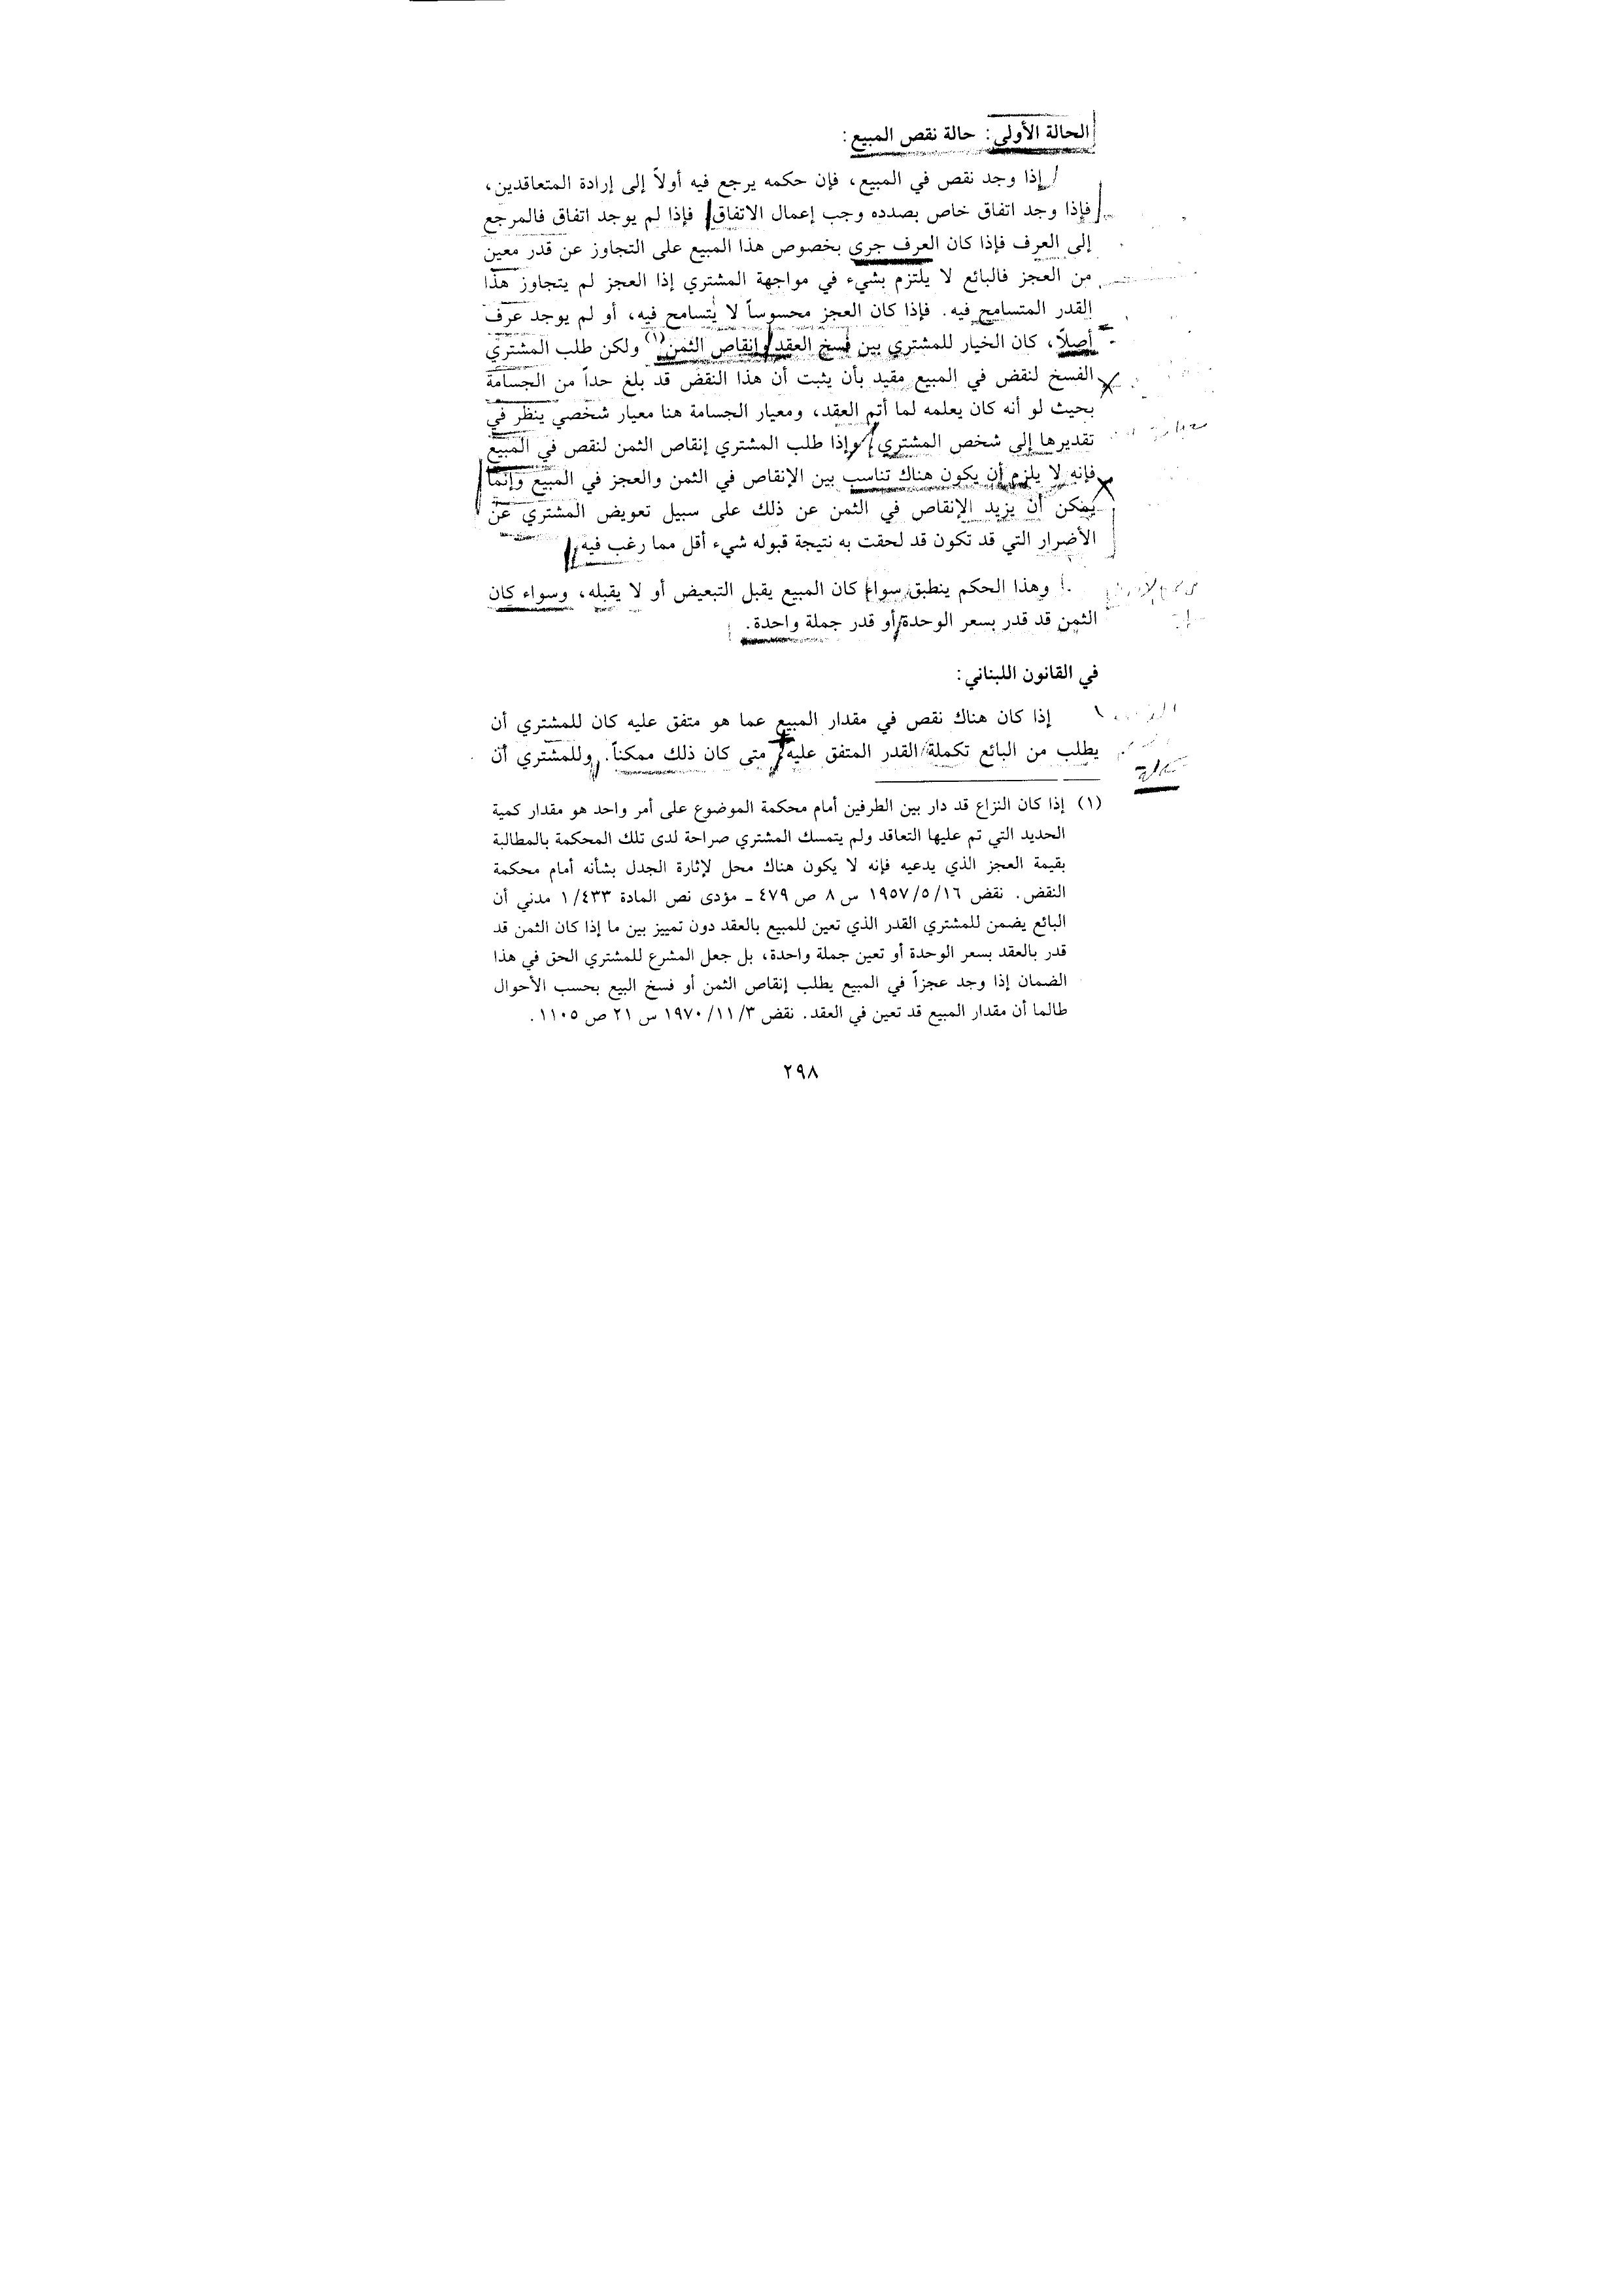 الحالة الأولى: حالة نقص المبيع:
إذا وجد نقص في المبيع، فإن حكمه يرجع فيه أولاً إلى إرادة المتعاقدين،
فإذا وجد اتفاق خاص بصدده وجب إعمال الاتفاق فإذا لم يوجد اتفاق فالمرجع
إلى العرف فإذا كان العرف جرى بخصوص هذا المبيع على التجاوز عن قدر معين
من العجز فالبائع لا يلتزم بشيء في مواجهة المشتري إذا العجز لم يتجاوز هذا
القدر المتسامح فيه. فإذا كان العجز محسوساً لا يُتسامح فيه، أو لم يوجد عرف
أصلاً، كان الخيار للمشتري بين فسخ العقد وإنقاص الثمن(١) ولكن طلب المشتري
الفسخ لنقض في المبيع مقيد بأن يثبت أن هذا النقض قد بلغ حداً من الجسامة
بحيث لو أنه كان يعلمه لما أتم العقد، ومعيار الجسامة هنا معيار شخصي ينظر في
تقديرها إلى شخص المشتري وإذا طلب المشتري إنقاص الثمن لنقص في المبيع
فإنه لا يلزم أن يكون هناك تناسب بين الإنقاص في الثمن والعجز في المبيع وإنما
يمكن أن يزيد الإنقاص في الثمن عن ذلك على سبيل تعويض المشتري عن
الأضرار التي قد تكون قد لحقت به نتيجة قبوله شيء أقل مما رغب فيه
وهذا الحكم ينطبق سواء كان المبيع يقبل التبعيض أو لا يقبله، وسواء كان
الثمن قد قدر بسعر الوحدة أو قدر جملة واحدة.
في القانون اللبناني:
إذا كان هناك نقص في مقدار المبيع عما هو متفق عليه كان للمشتري أن
يطلب من البائع تكملة القدر المتفق عليه متى كان ذلك ممكناً. وللمشتري أن
(١) إذا كان النزاع قد دار بين الطرفين أمام محكمة الموضوع على أمر واحد هو مقدار كمية
الحديد التي تم عليها التعاقد ولم يتمسك المشتري صراحة لدى تلك المحكمة بالمطالبة
بقيمة العجز الذي يدعيه فإنه لا يكون هناك محل لإثارة الجدل بشأنه أمام محكمة
النقض. نقض ١٩٥٧/٥/١٦ س ٨ ص ٤٧٩ ـ مؤدى نص المادة ١/٤٣٣ مدني أن
البائع يضمن للمشتري القدر الذي تعين للمبيع بالعقد دون تمييز بين ما إذا كان الثمن قد
قدر بالعقد بسعر الوحدة أو تعين جملة واحدة، بل جعل المشرع للمشتري الحق في هذا
الضمان إذا وجد عجزاً في المبيع يطلب إنقاص الثمن أو فسخ البيع بحسب الأحوال
طالما أن مقدار المبيع قد تعين في العقد. نقض ١٩٧٠/١١/٣ س ٢١ ص ١١٠٥.
٢٩٨